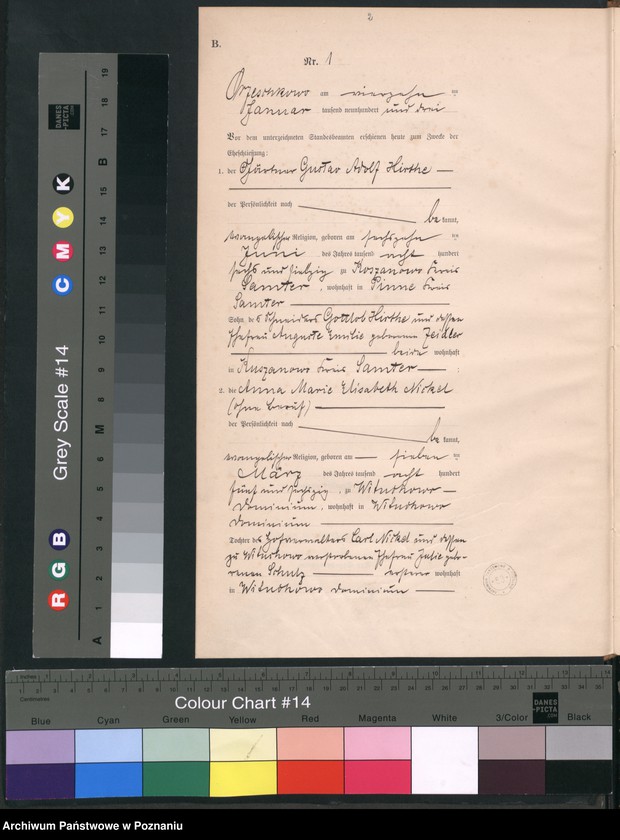 2
B.
Nr. 1
Orzeschkowo am vierzehn ten
Januar tausend neunhundert und drei
Vor dem unterzeichneten Standesbeamten erschienen heute zum Zwecke der
Eheschließung:
1. der Gärtner Gustav Adolf Hirthe
der Persönlichkeit nach
be kannt,
evangelischer Religion, geboren am sechszehn ten
Juni des Jahres tausend acht hundert
sechs und siebzig zu Koszanowo Kreis
Samter, wohnhaft in Pinne Kreis
Samter
Sohn des Schneiders Gottlob Hirthe und dessen
Ehefrau Auguste Emilie geborenen Zeidler
beide wohnhaft
in Kuszanowo Kreis Samter
2. die Anna Marie Elisabeth Nickel
(ohne Beruf)
der Persönlichkeit nach
be kannt,
evangelischer Religion, geboren am sieben ten
März des Jahres tausend acht hundert
fünf und sechszig, zu Wituchowo
Dominium, wohnhaft in Wituchowo
Dominium
Tochter des Hofverwalters Carl Nickel und dessen
zu Wituchowo verstorbenen Ehefrau Julie gebo-
renen Schulz ersterer wohnhaft
in Wituchowo Dominium
Grey Scale #14
DANES
-PICTA
.COM
C M Y K
R G B
A 1 2 3 4 5 6 M 8 9 10 11 12 13 14 15 B 17 18 19
Inches
Centimetres
Colour Chart #14
Blue Cyan Green Yellow Red Magenta White 3/Color Black
DANES
-PICTA
.COM
Archiwum Państwowe w Poznaniu